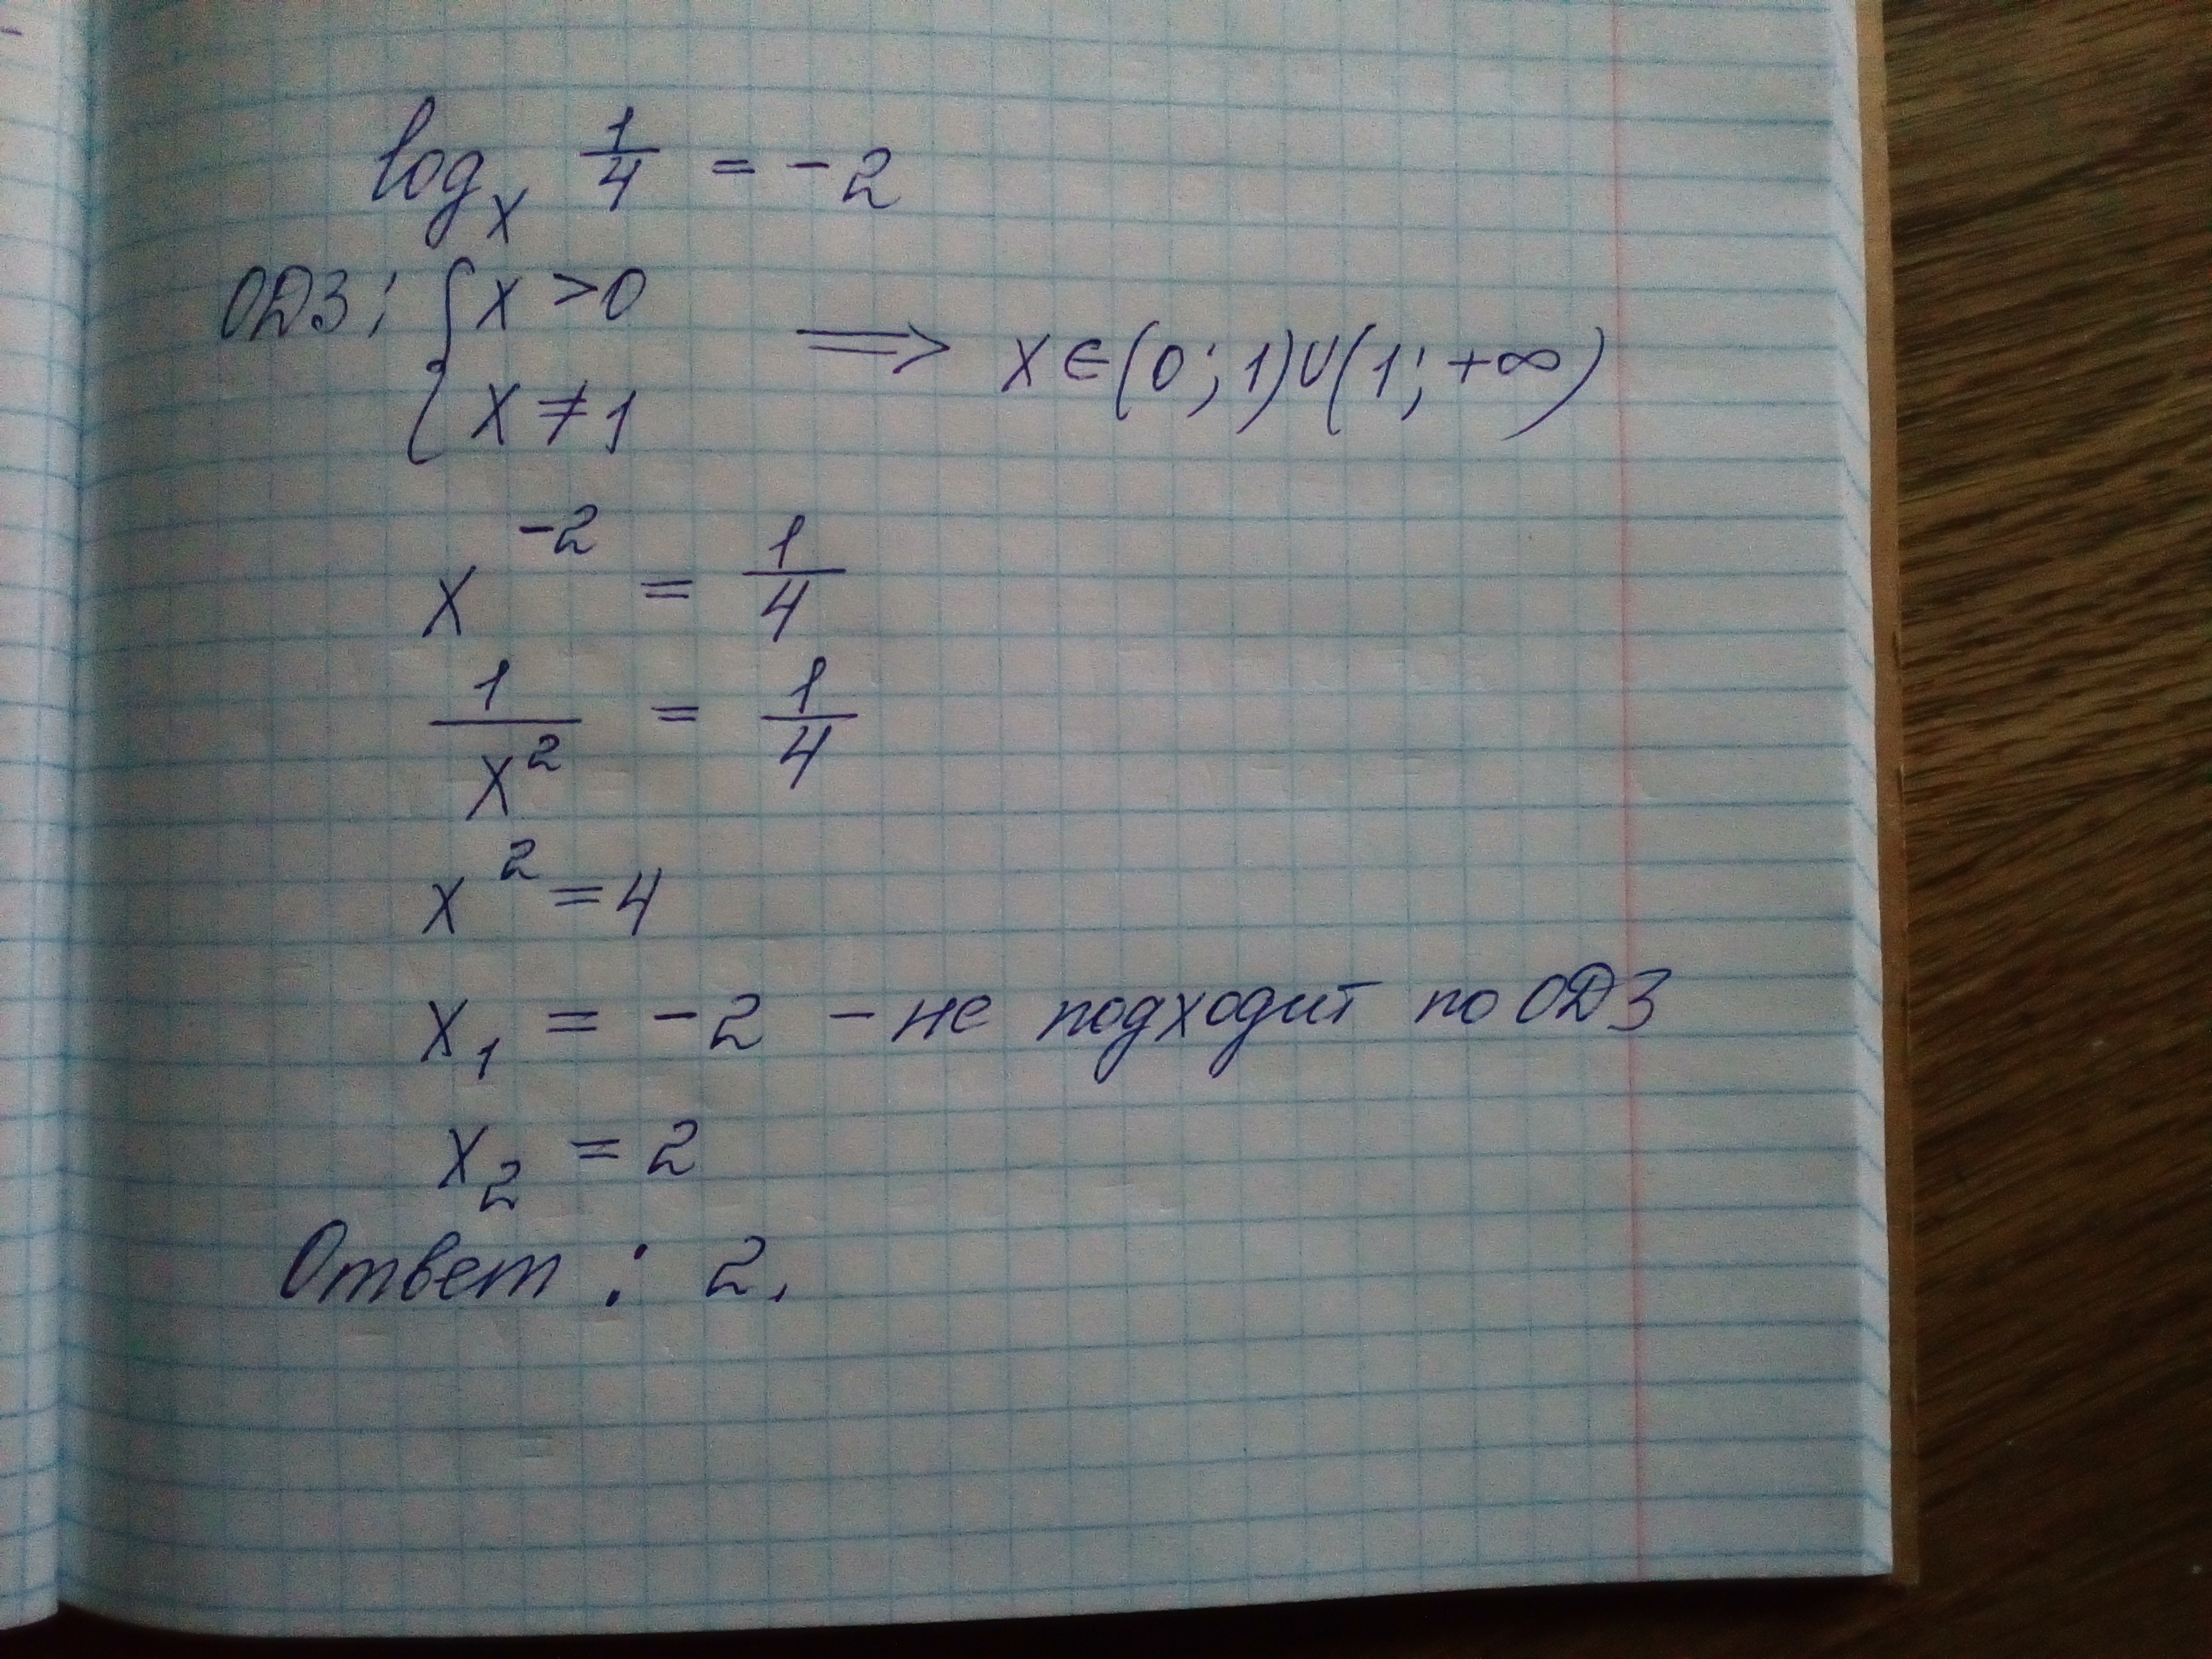 log_x 1/4 = -2
ОДЗ: { x > 0
x ≠ 1 ⟹ x ∈ (0; 1) ∪ (1; +∞)
x^-2 = 1/4
1/x^2 = 1/4
x^2 = 4
x_1 = -2 - не подходит по ОДЗ
x_2 = 2
Ответ: 2.